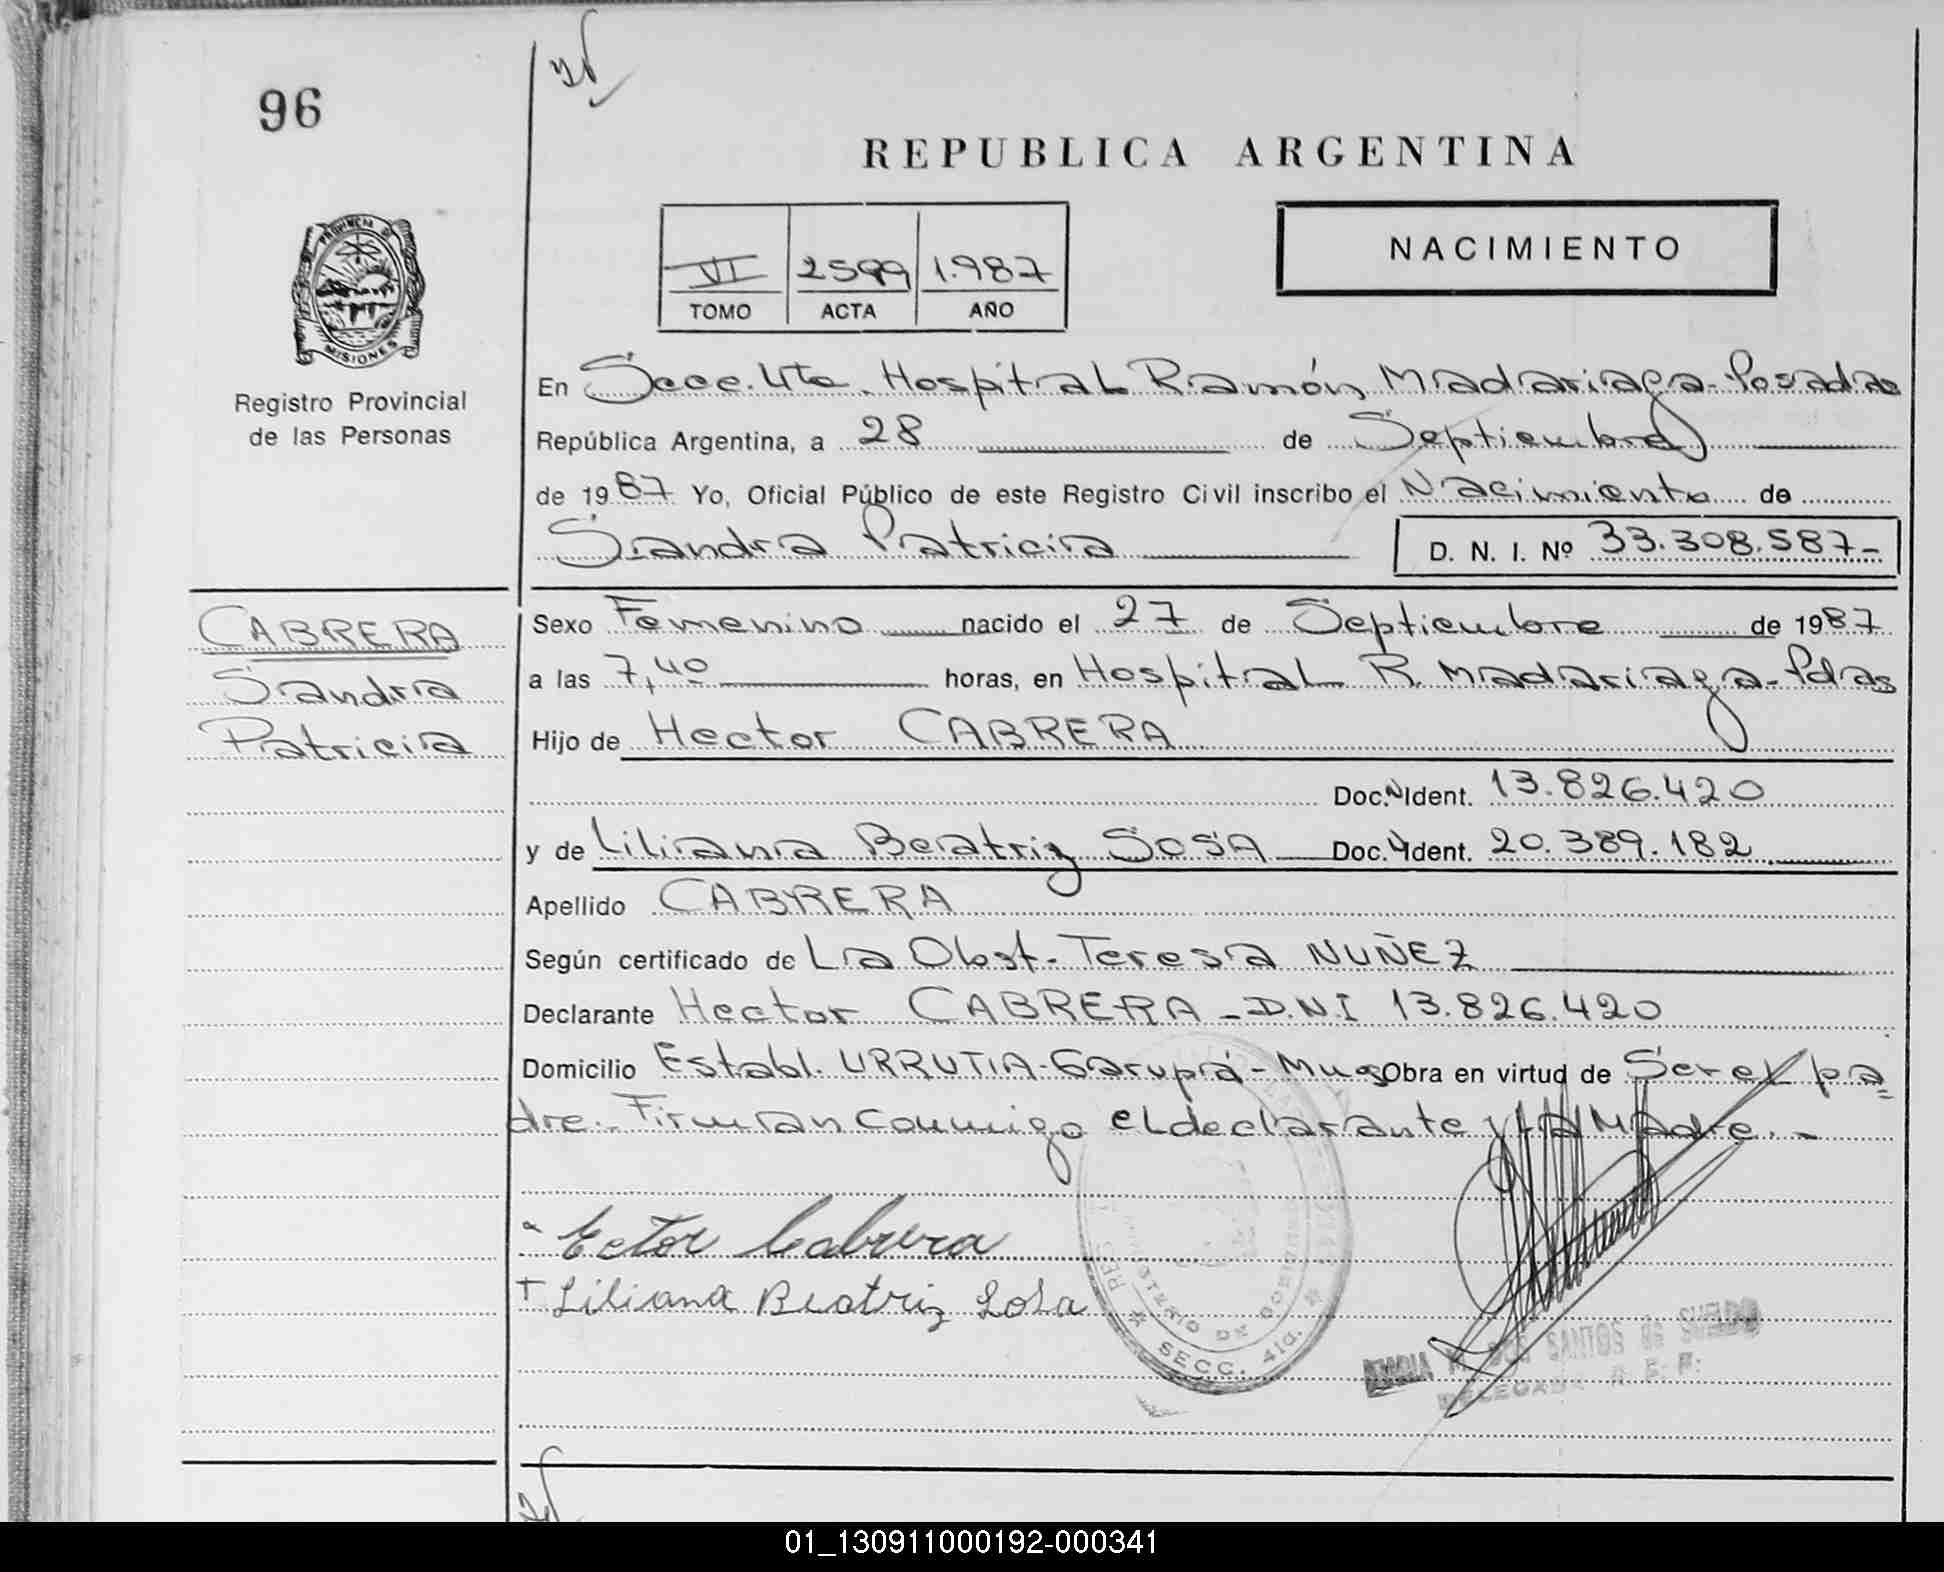 96
REPUBLICA ARGENTINA
NACIMIENTO
VI 2599 1.987
TOMO ACTA AÑO
PROVINCIA DE
MISIONES
Registro Provincial
de las Personas
En Secc. 4ta. Hospital Ramón Madariaga - Posadas
República Argentina, a 28 de Septiembre
de 1987 Yo, Oficial Público de este Registro Civil inscribo el Nacimiento de
Sandra Patricia D. N. I. Nº 33.308.587-
CABRERA
Sandra
Patricia
Sexo Femenino nacido el 27 de Septiembre de 1987
a las 7,40 horas, en Hospital R. Madariaga - Pdas
Hijo de Hector CABRERA
Doc. Ident. 13.826.420
y de Liliana Beatriz SOSA Doc. Ident. 20.389.182
Apellido CABRERA
Según certificado de La Obst. Teresa NUÑEZ
Declarante Hector CABRERA - D.N.I 13.826.420
Domicilio Establ. URRUTIA - Garupá - Mnes Obra en virtud de Ser el pa=
dre. - Firman conmigo el declarante y LA MAdre. -
Ector Cabrera
+ Liliana Beatriz Sosa
MINISTERIO DE GOBIERNO
SECC. 4ta.
DOS SANTOS DE
DELEGADA R. P. P.
01_130911000192-000341